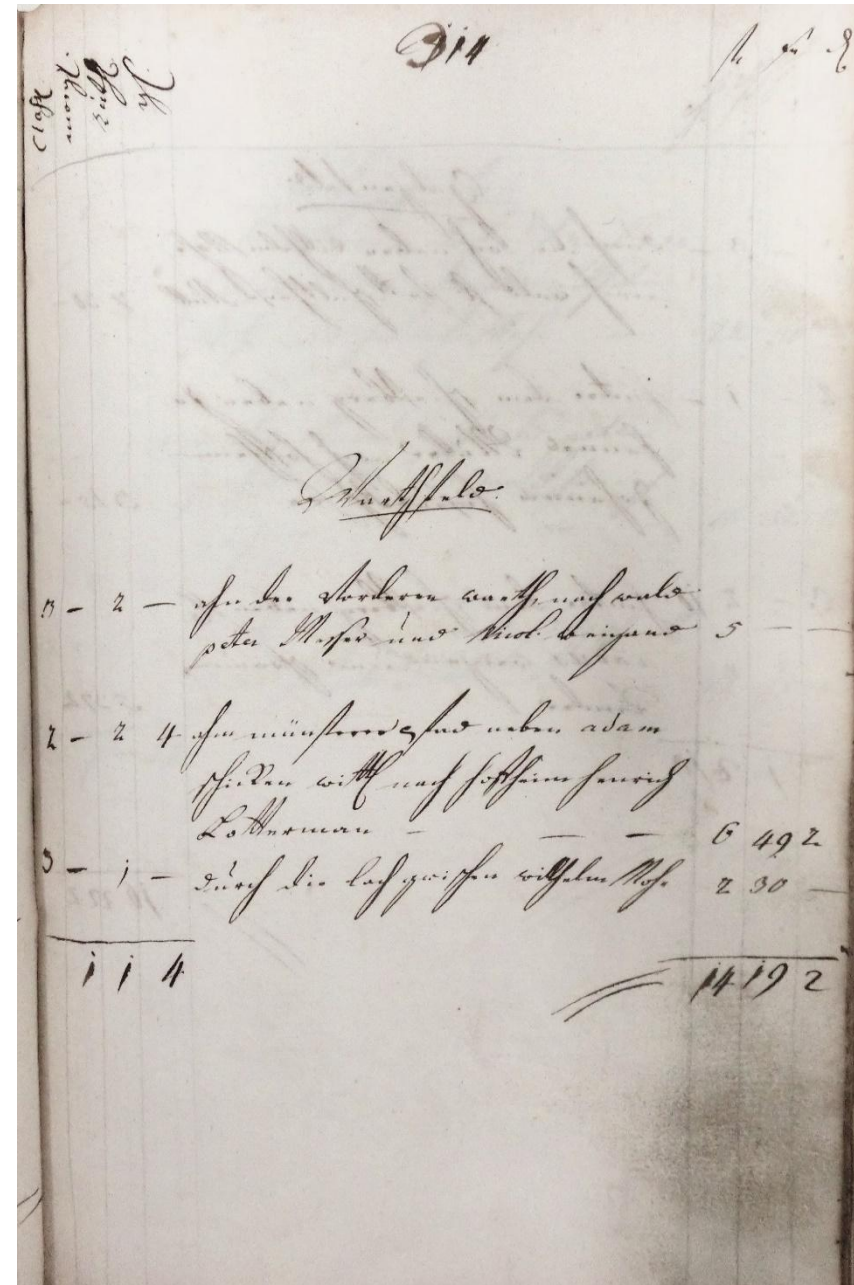 314
Warthfeld
3 – 2 – ahn der Vorderen warth, nach wald
peter Messer und Nicol. weigand 5 – –
2 – 2 4 ahm münsterer pfad neben adam
schicken witt nach hoffheim henrich
Lotterman – – – 6 49 2
3 – 1 – durch die lach zwischen wilhelm Nohe 2 30 –
1 1 4 14 19 2